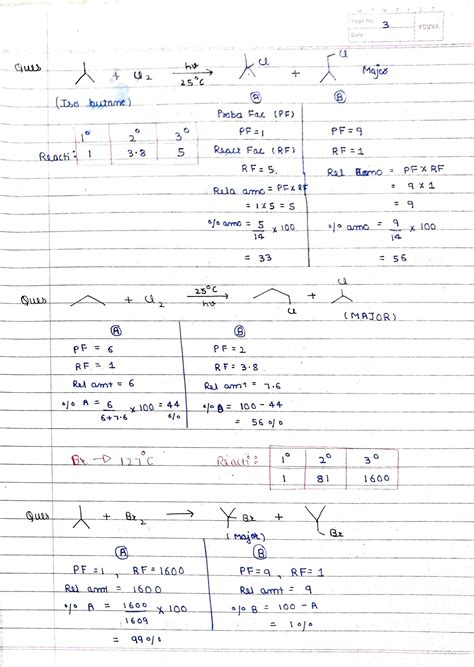 Page No. 3
Date
YOUVA
Ques + Cl2 hν 25°C Cl + Cl Major
(Iso butane) A B
Proba Fac (PF)
1° 2° 3° PF=1 PF=9
Reacti: 1 3.8 5 React Fac (RF) RF=1
RF=5 Rel amo = PF×RF
Rela amo = PF×RF = 9×1
= 1×5 = 5 = 9
% amo = 5/14 × 100 % amo = 9/14 × 100
= 33 = 56
Ques + Cl2 25°C hν Cl + Cl
(MAJOR)
A B
PF = 6 PF = 2
RF = 1 RF = 3.8
Rel amt = 6 Rel amt = 7.6
% A = 6/6+7.6 × 100 = 44 % % B = 100 - 44
= 56 %
Br → 127°C Reacti: 1° 2° 3°
1 81 1600
Ques + Br2 → Br + Br
(Major)
A B
PF=1, RF=1600 PF=9, RF=1
Rel amt = 1600 Rel amt = 9
% A = 1600/1609 × 100 % B = 100 - A
= 1%
= 99%